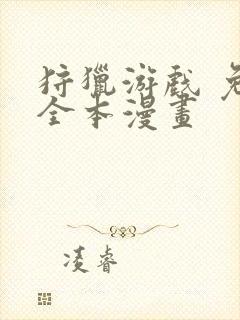 狩獵游戲
全本漫畫
凌睿